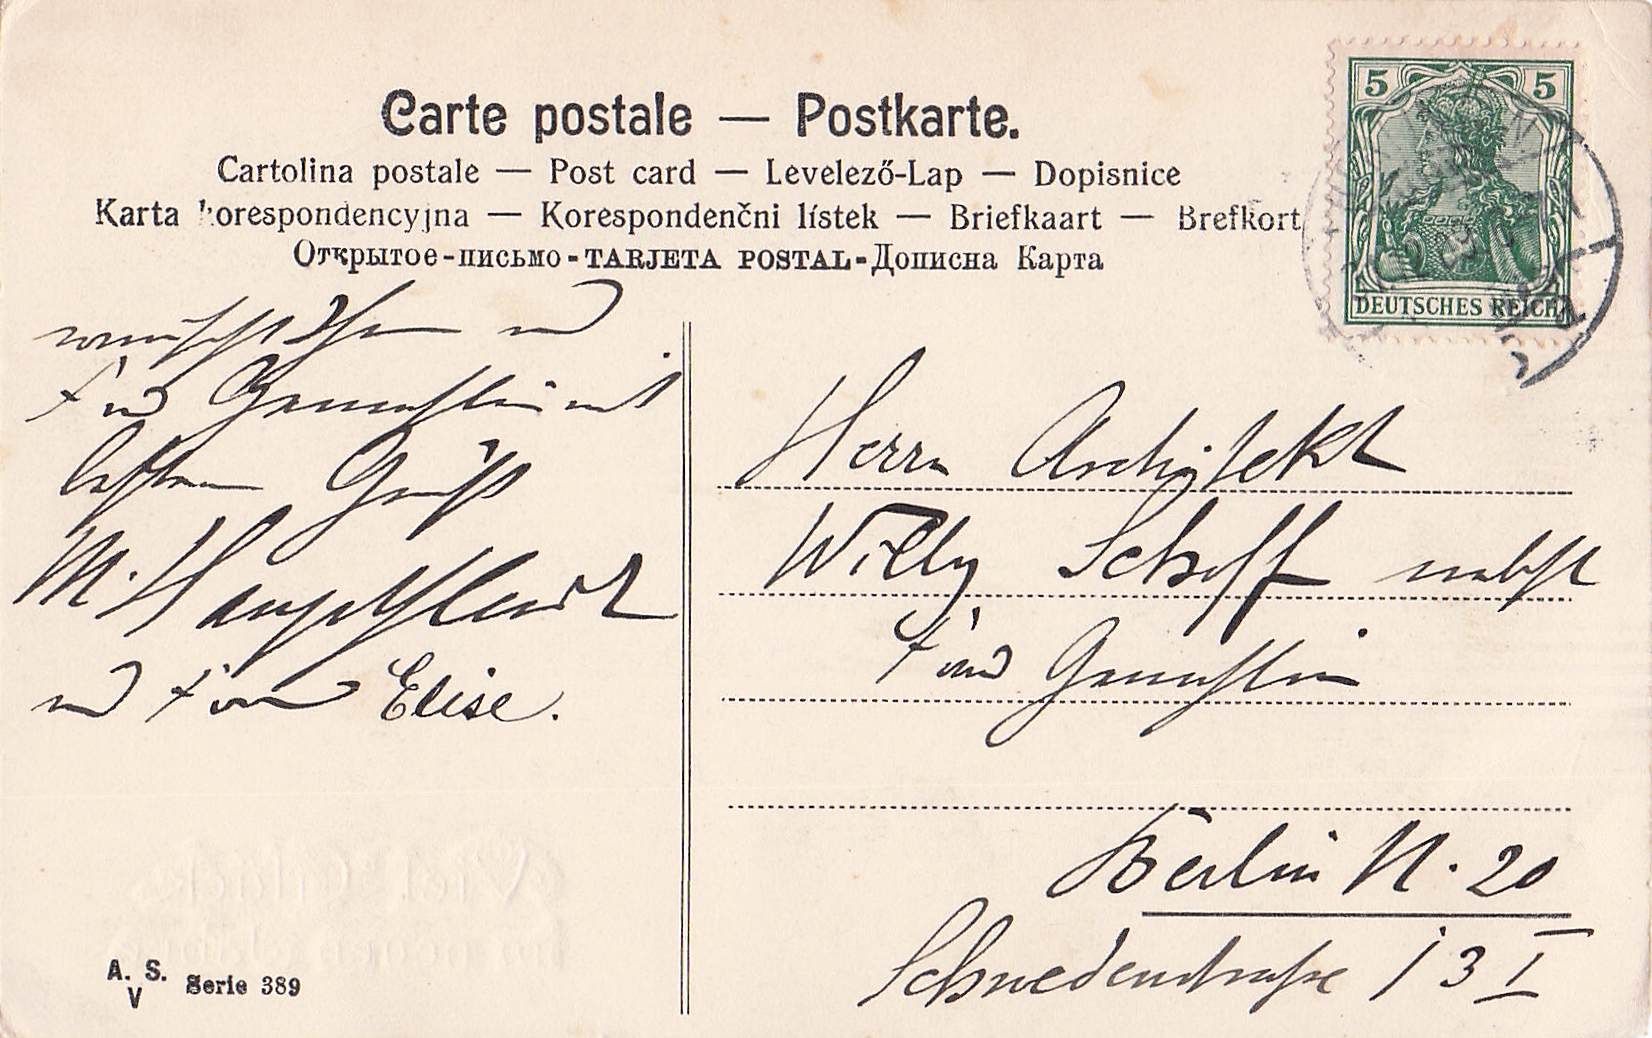 Carte postale — Postkarte.
Cartolina postale — Post card — Levelező-Lap — Dopisnice
Karta korespondencyjna — Korespondenčni lístek — Briefkaart — Brefkort
Открытое-письмо-TARJETA POSTAL-Дописна Карта
5 5
DEUTSCHES REICH
wünscht Ihnen und
Frau Gemahlin mit
besten Gruß
M.
und Frau Elise.
Herrn Architekt
Willy Scholf nebst
Frau Gemahlin
Berlin N. 20
Schwedenstraße 13 I
A. S.
V
Serie 389
Viel Glück
im neuen Jahre